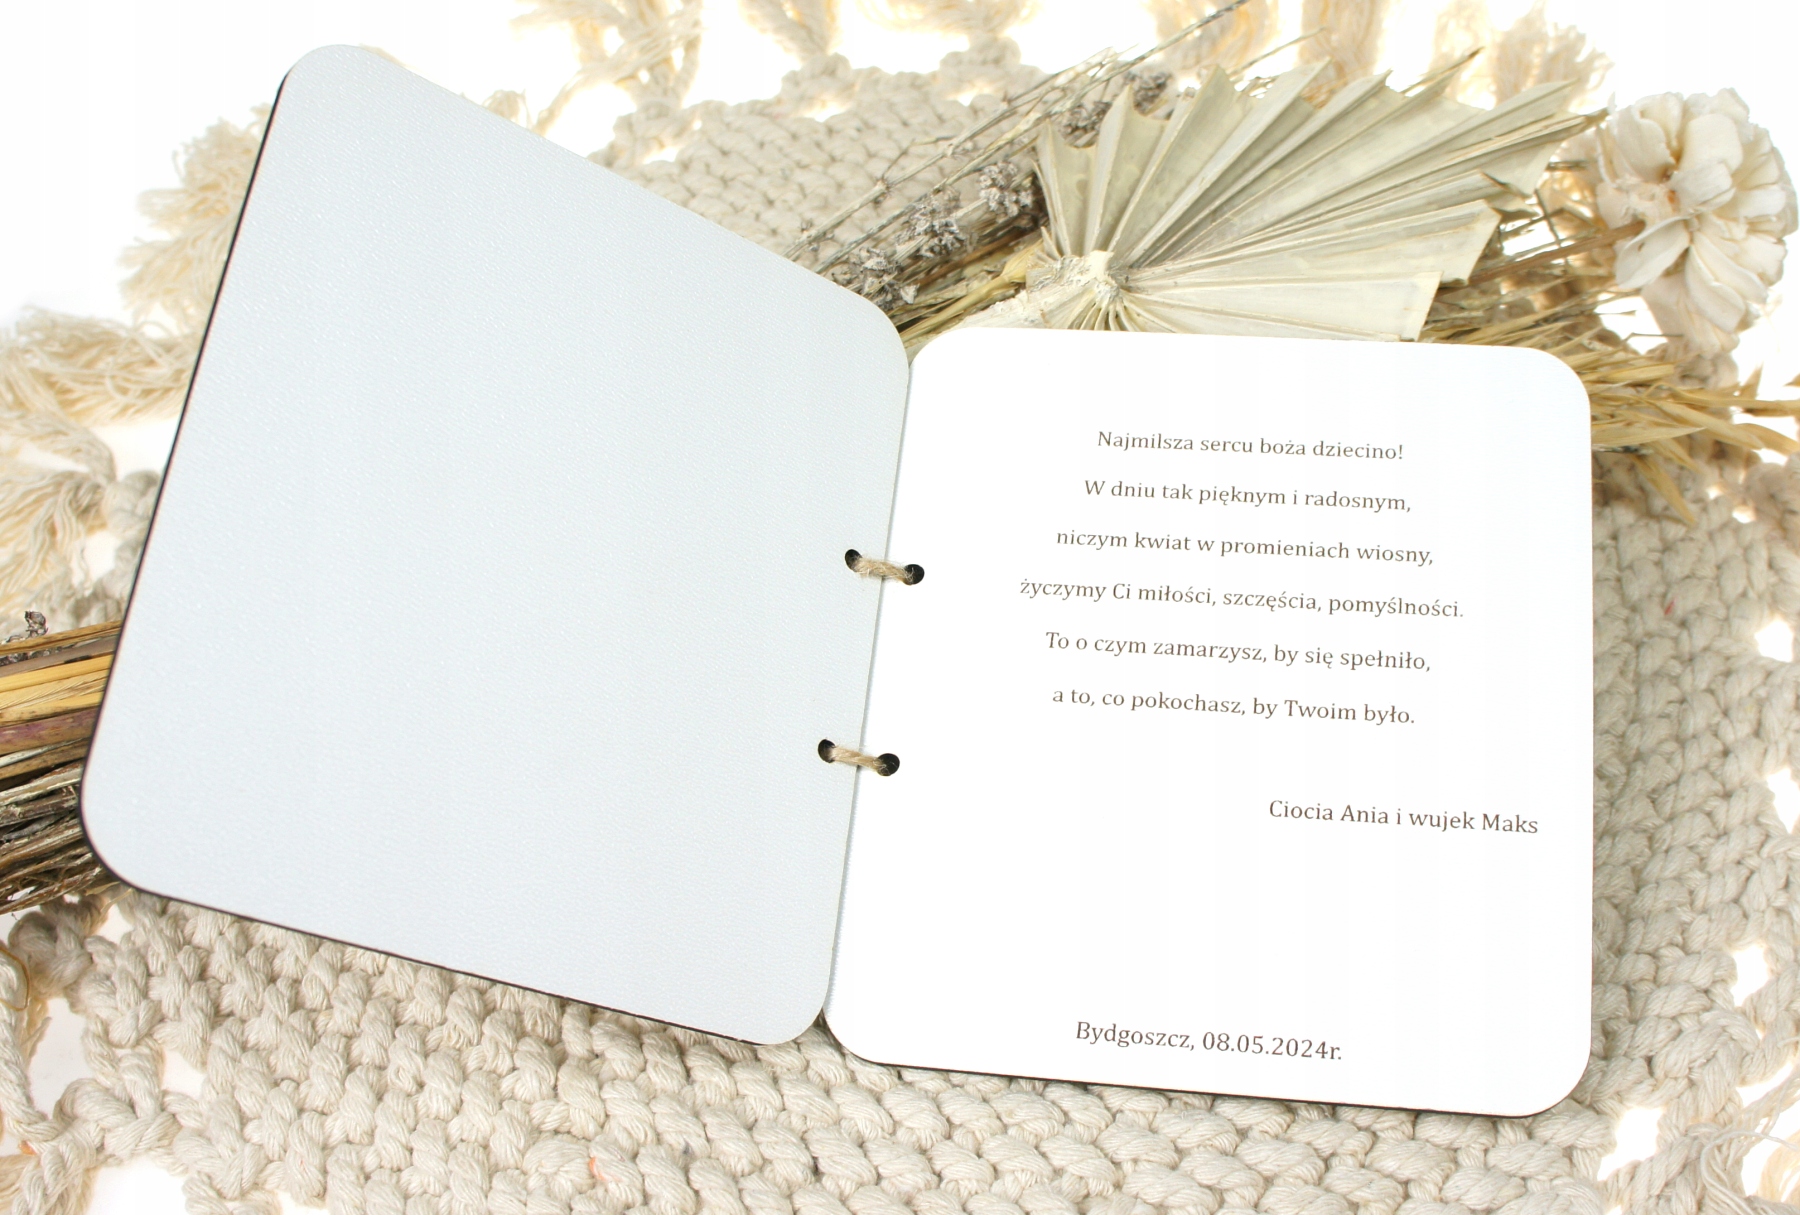 Najmilsza sercu boża dziecino!
W dniu tak pięknym i radosnym,
niczym kwiat w promieniach wiosny,
życzymy Ci miłości, szczęścia, pomyślności.
To o czym zamarzysz, by się spełniło,
a to, co pokochasz, by Twoim było.
Ciocia Ania i wujek Maks
Bydgoszcz, 08.05.2024r.